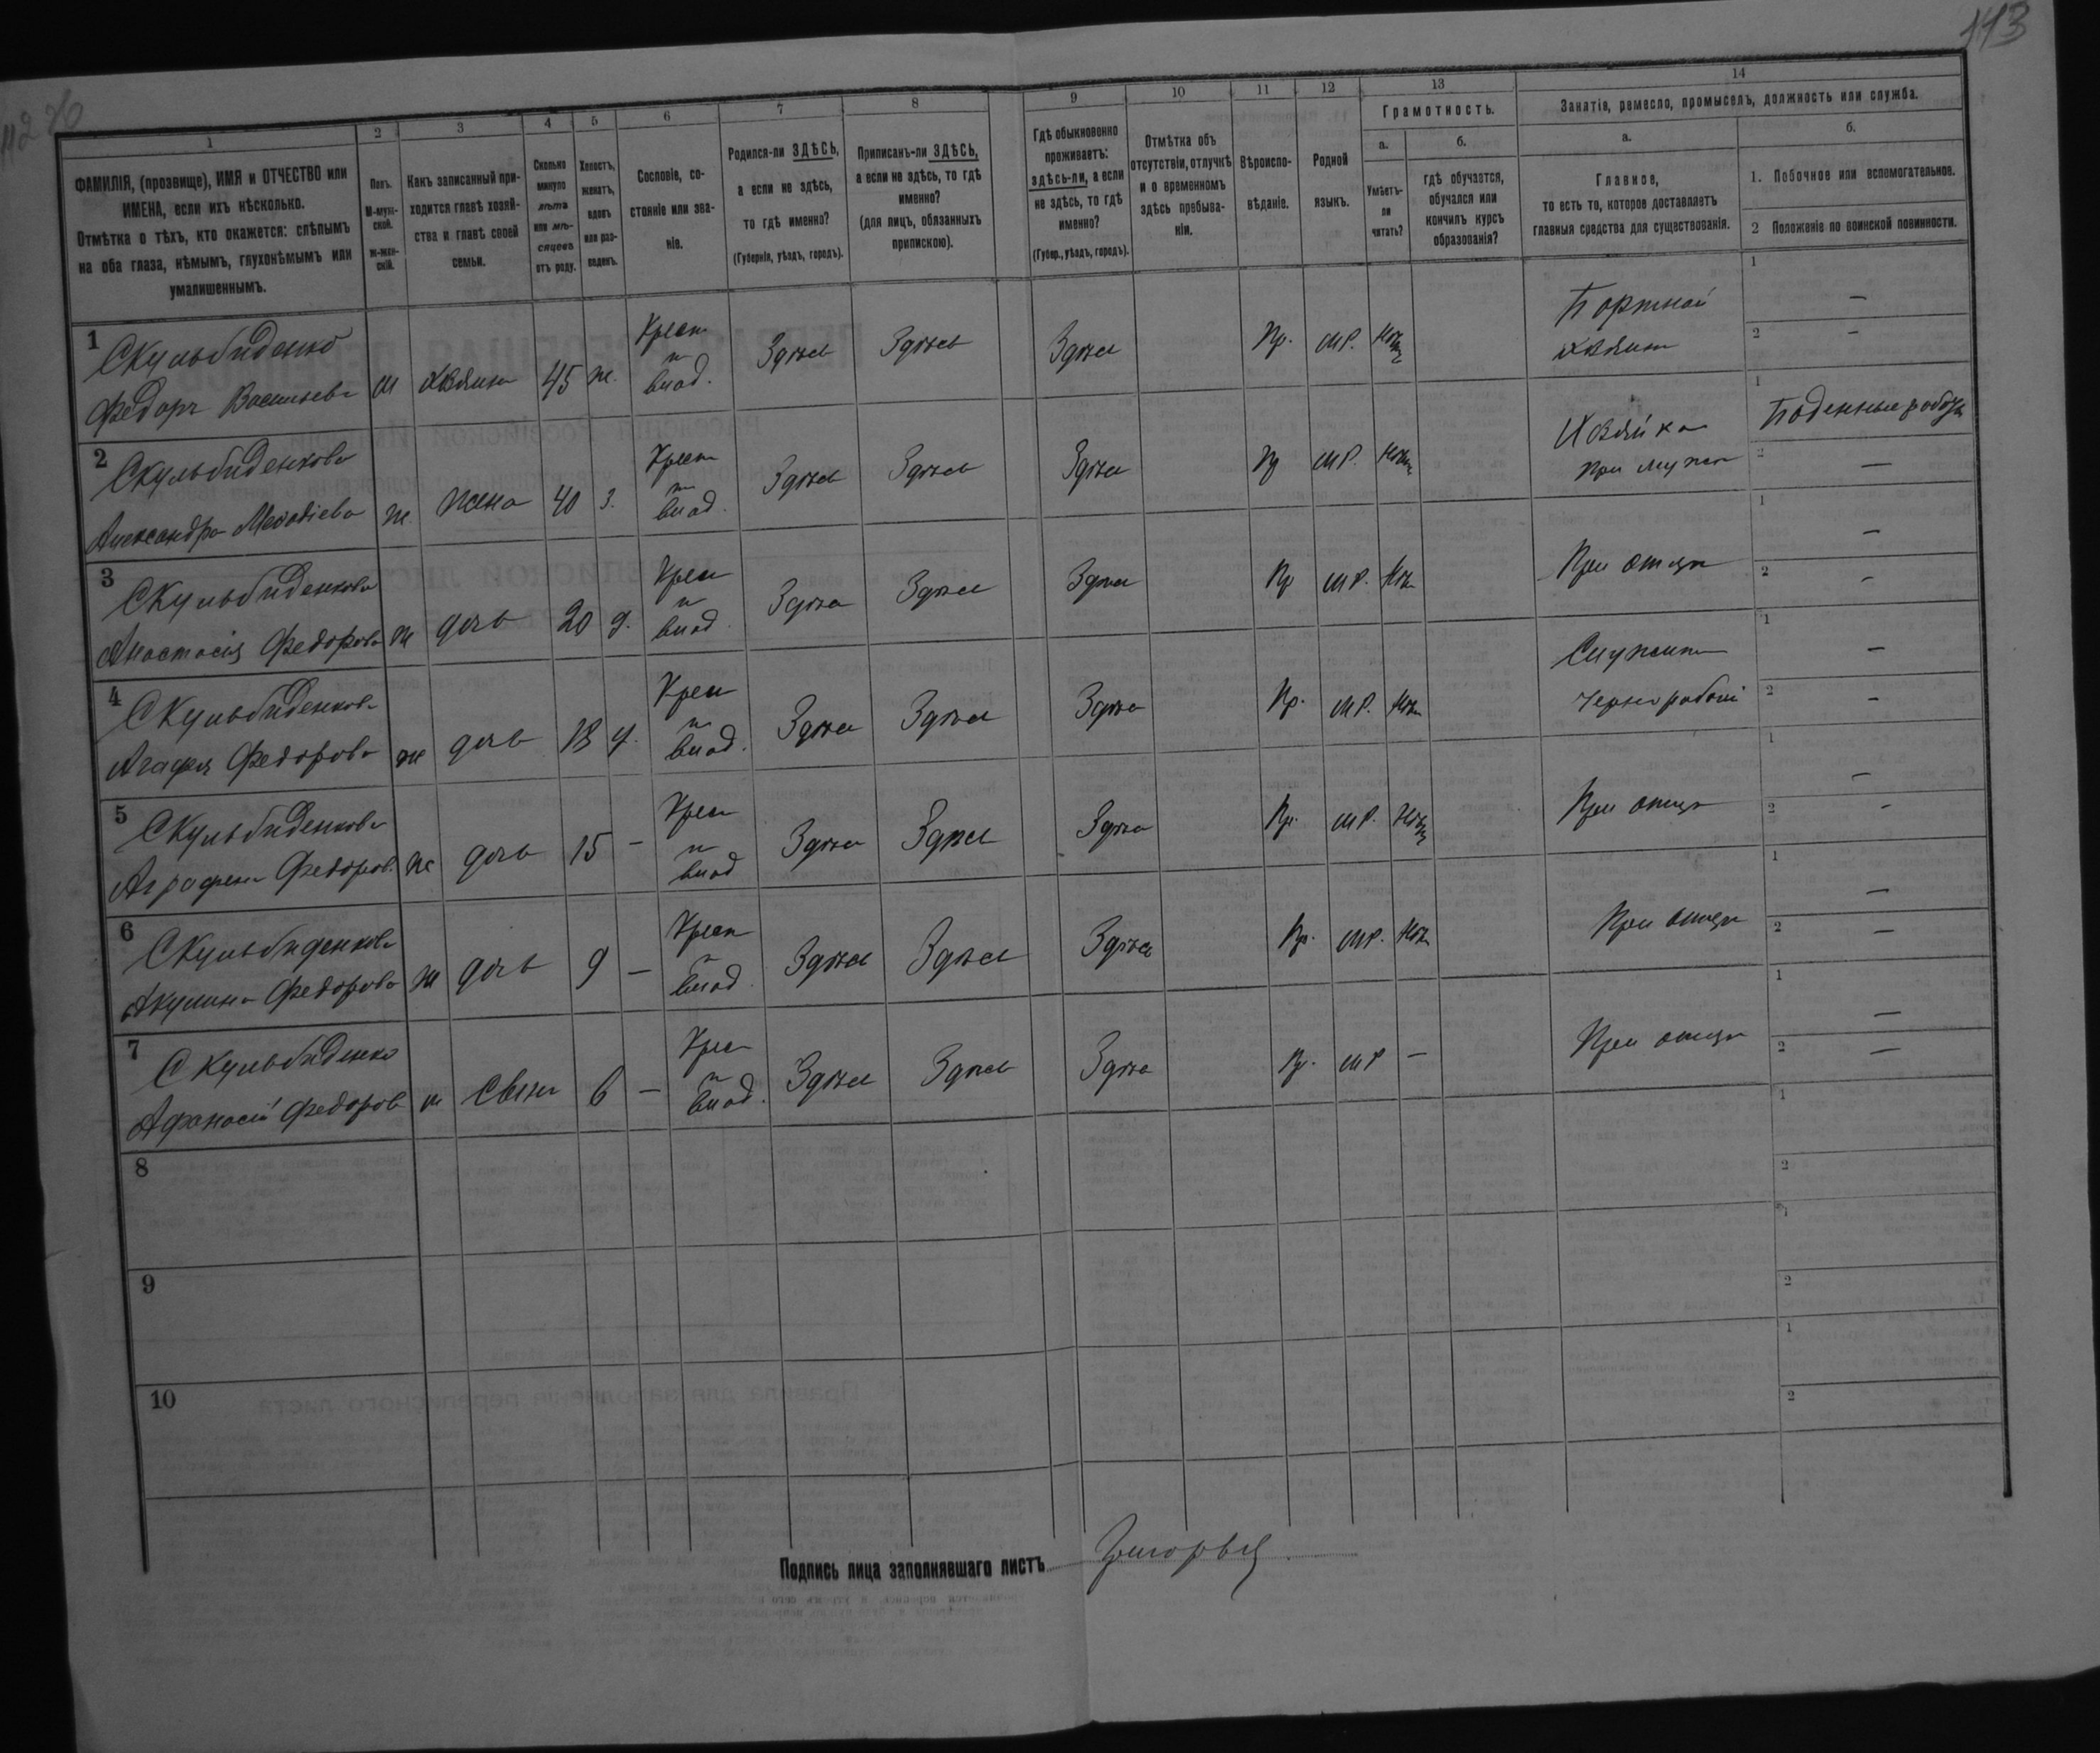 113
1
2
3
4
5
6
7
8
9
10
11
12
13
14
ФАМИЛІЯ, (прозвище), ИМЯ и ОТЧЕСТВО или
ИМЕНА, если ихъ нѣсколько.
Отмѣтка о тѣхъ, кто окажется: слѣпымъ
на оба глаза, нѣмымъ, глухонѣмымъ или
умалишеннымъ.
Полъ.
М-муж-
ской.
ж-жен-
скій.
Какъ записанный при-
ходится главѣ хозяй-
ства и главѣ своей
семьи.
Сколько
минуло
лѣтъ
или мѣ-
сяцевъ
отъ роду.
Холостъ,
женатъ,
вдовъ
или раз-
веденъ.
Сословіе, со-
стояніе или зва-
ніе.
Родился-ли ЗДѢСЬ,
а если не здѣсь,
то гдѣ именно?
(Губернія, уѣздъ, городъ).
Приписанъ-ли ЗДѢСЬ,
а если не здѣсь, то гдѣ
именно?
(для лицъ, обязанныхъ
припискою).
Гдѣ обыкновенно
проживаетъ:
здѣсь-ли, а если
не здѣсь, то гдѣ
именно?
(Губер., уѣздъ, городъ).
Отмѣтка объ
отсутствіи, отлучкѣ
и о временномъ
здѣсь пребыва-
ніи.
Вѣроиспо-
вѣданіе.
Родной
языкъ.
Грамотность.
а.
Умѣетъ-
ли
читать?
б.
гдѣ обучается,
обучался или
кончилъ курсъ
образованія?
Занятія, ремесло, промыселъ, должность или служба.
а.
Главное,
то есть то, которое доставляетъ
главныя средства для существованія.
б.
1. Побочное или вспомогательное.
2 Положеніе по воинской повинности.
1 Скульбиденко
Федоръ Васильевъ м хозяинъ 45 ж. Крест. влад. Здѣсь Здѣсь Здѣсь Пр. мр. Нѣтъ Портной хозяинъ 1 — 2 —
2 Скульбиденкова
Александра Меѳодіева ж. жена 40 з. Крест. влад. Здѣсь Здѣсь Здѣсь Пр мр. Нѣтъ Хозяйка при мужѣ 1 Поденные работы 2 —
3 Скульбиденкова
Анастасія Федорова ж дочь 20 д. Крес влад. Здѣсь Здѣсь Здѣсь Пр мр. Нѣтъ При отцѣ 1 — 2 —
4 Скульбиденкова
Агафья Федорова ж дочь 18 д. Крес влад. Здѣсь Здѣсь Здѣсь Пр. мр. Нѣтъ 1 — 2 —
5 Скульбиденкова
Аграфена Федоров. ж дочь 15 — Крес влад Здѣсь Здѣсь Здѣсь Пр. мр. Нѣтъ При отцѣ 1 — 2 —
6 Скульбиденкова
Акулина Федорова ж дочь 9 — Крест влад. Здѣсь Здѣсь Здѣсь Пр. мр. Нѣтъ При отцѣ 1 — 2 —
7 Скульбиденко
Афанасій Федоров м сынъ 6 — Крес влад. Здѣсь Здѣсь Здѣсь Пр. мр — При отцѣ 1 — 2 —
8 1 2
9 1 2
10 1 2
Подпись лица заполнявшаго листъ